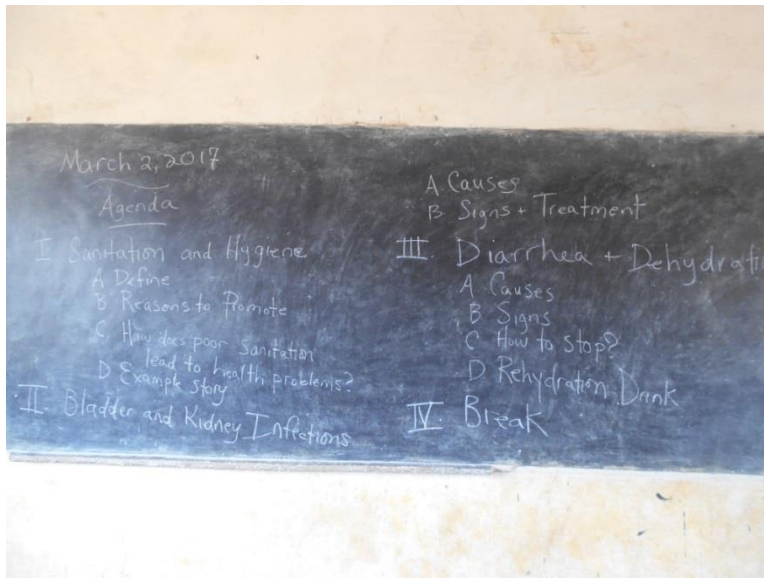 March 2, 2017
Agenda
I Sanitation and Hygiene
A Define
B Reasons to Promote
C How does poor sanitation
lead to health problems?
D Example story
II. Bladder and Kidney Infections
A Causes
B Signs + Treatment
III. Diarrhea + Dehydrati
A Causes
B Signs
C How to stop?
D Rehydration Drink
IV. Break